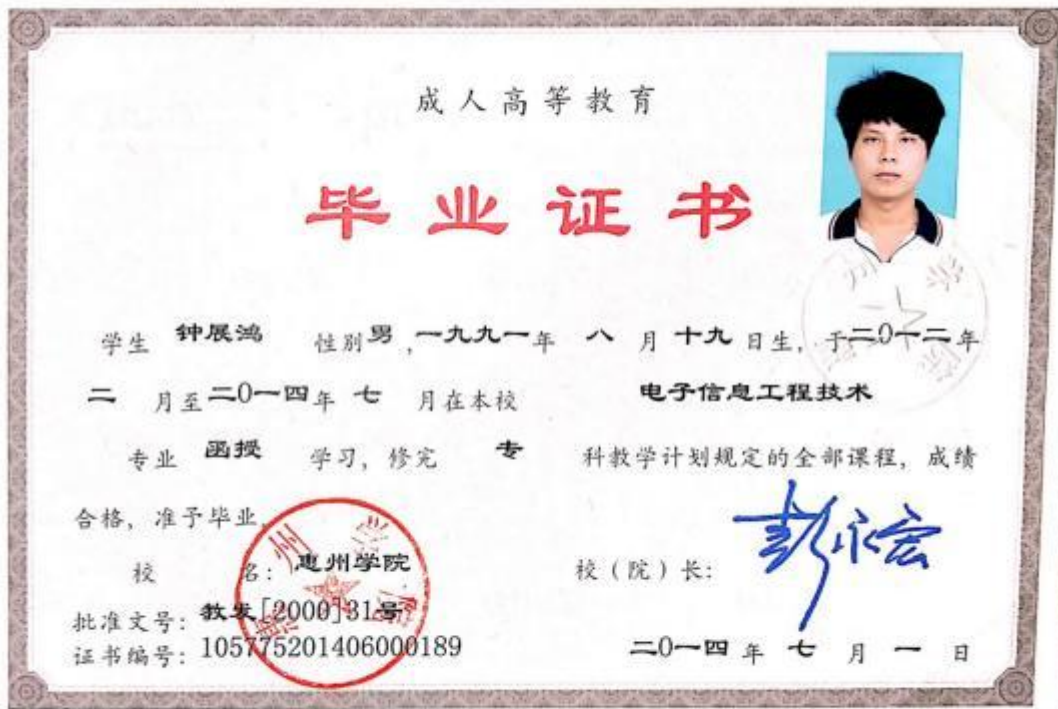 成人高等教育
毕业证书
学生 钟展鸿 性别 男 ,一九九一年 八 月 十九 日生, 于二0一二年
二 月至二0一四年 七 月在本校 电子信息工程技术
专业 函授 学习, 修完 专 科教学计划规定的全部课程, 成绩
合格, 准予毕业.
校 名: 惠州学院 校(院)长: 彭永宏
批准文号: 教发[2000]31号
证书编号: 105775201406000189 二0一四 年 七 月 一 日
惠州学院